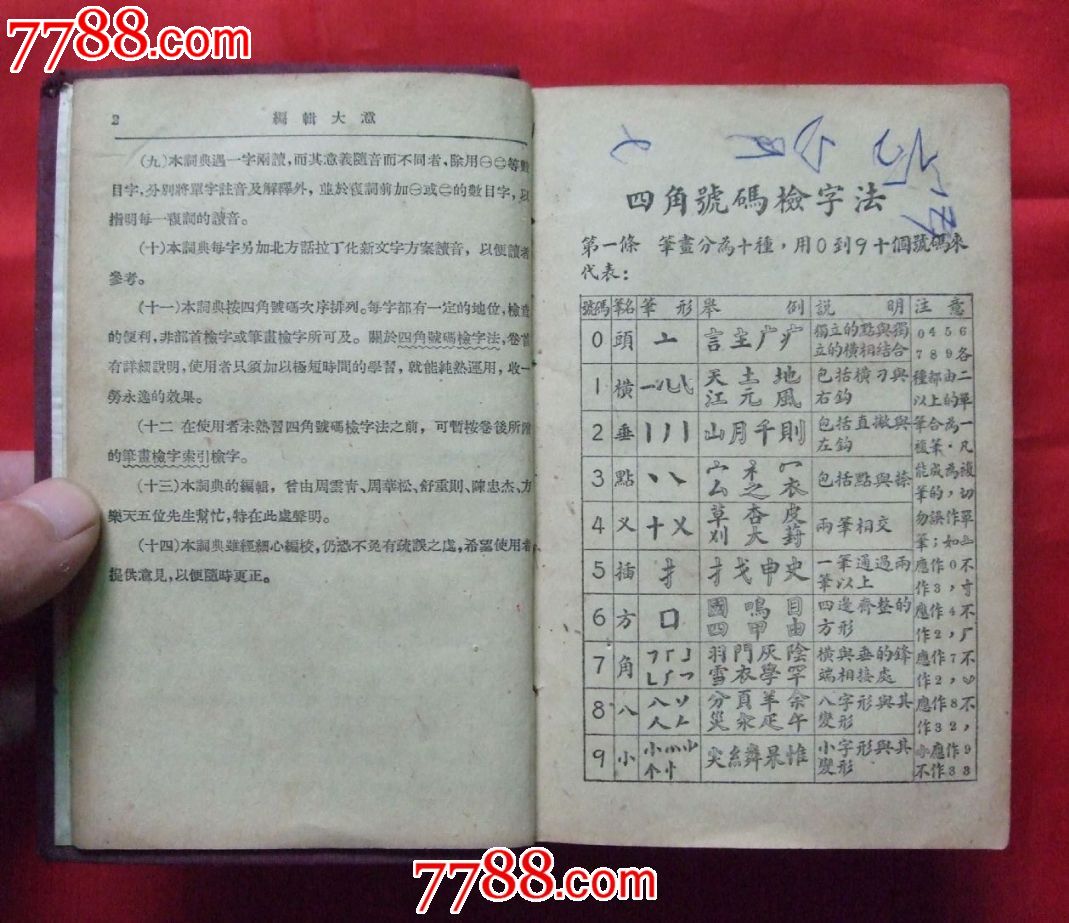 7788.com
7788.com
2 編輯大意
(九)本詞典遇一字兩讀，而其意義隨音而不同者，除用㊀㊁等數
目字，分別將單字註音及解釋外，並於復詞前加㊀或㊁的數目字，以
指明每一複詞的讀音。
(十)本詞典每字另加北方話拉丁化新文字方案讀音，以便讀者
參考。
(十一)本詞典按四角號碼次序排列。每字都有一定的地位，檢查
的便利，非部首檢字或筆畫檢字所可及。關於四角號碼檢字法，卷首
有詳細說明，使用者只須加以極短時間的學習，就能純熟運用，收一
勞永逸的效果。
(十二 在使用者未熟習四角號碼檢字法之前，可暫按卷後所附
的筆畫檢字索引檢字。
(十三)本詞典的編輯，曾由周雲青、周華松、舒重則、陳忠杰、方
樂天五位先生幫忙，特在此處聲明。
(十四)本詞典雖經細心編校，仍恐不免有疏誤之處，希望使用者
提供意見，以便隨時更正。
四角號碼檢字法
第一條 筆畫分為十種，用0到9十個號碼來
代表：
號碼 筆名 筆形 舉例 説明 注意
0 頭 亠 言主广疒 獨立的點與獨立的橫相結合
1 橫 天土地江元風 包括橫刁與右鈎
2 垂 山月千則 包括直撇與左鈎
3 點 宀礻冖厶之衣 包括點與捺
4 叉 十乂 草杏皮刈大葑 兩筆相交
5 插 扌 扌戈申史 一筆通過兩筆以上
6 方 口 國鳴目四甲由 四邊齊整的方形
7 角 羽門灰陰雪衣學罕 橫與垂的鋒端相接處
8 八 分頁羊余災汆疋午 八字形與其變形
9 小 尖糹粦杲惟 小字形與其變形
0 4 5 6
7 8 9 各
種都由二
以上的單
筆合為一
複筆。凡
能成為複
筆的，切
勿誤作單
筆；如亠
應作0不
作3，寸
應作4不
作2，厂
應作7不
作2，丷
應作8不
作32，
小應作9
不作33
7788.com
7788.com